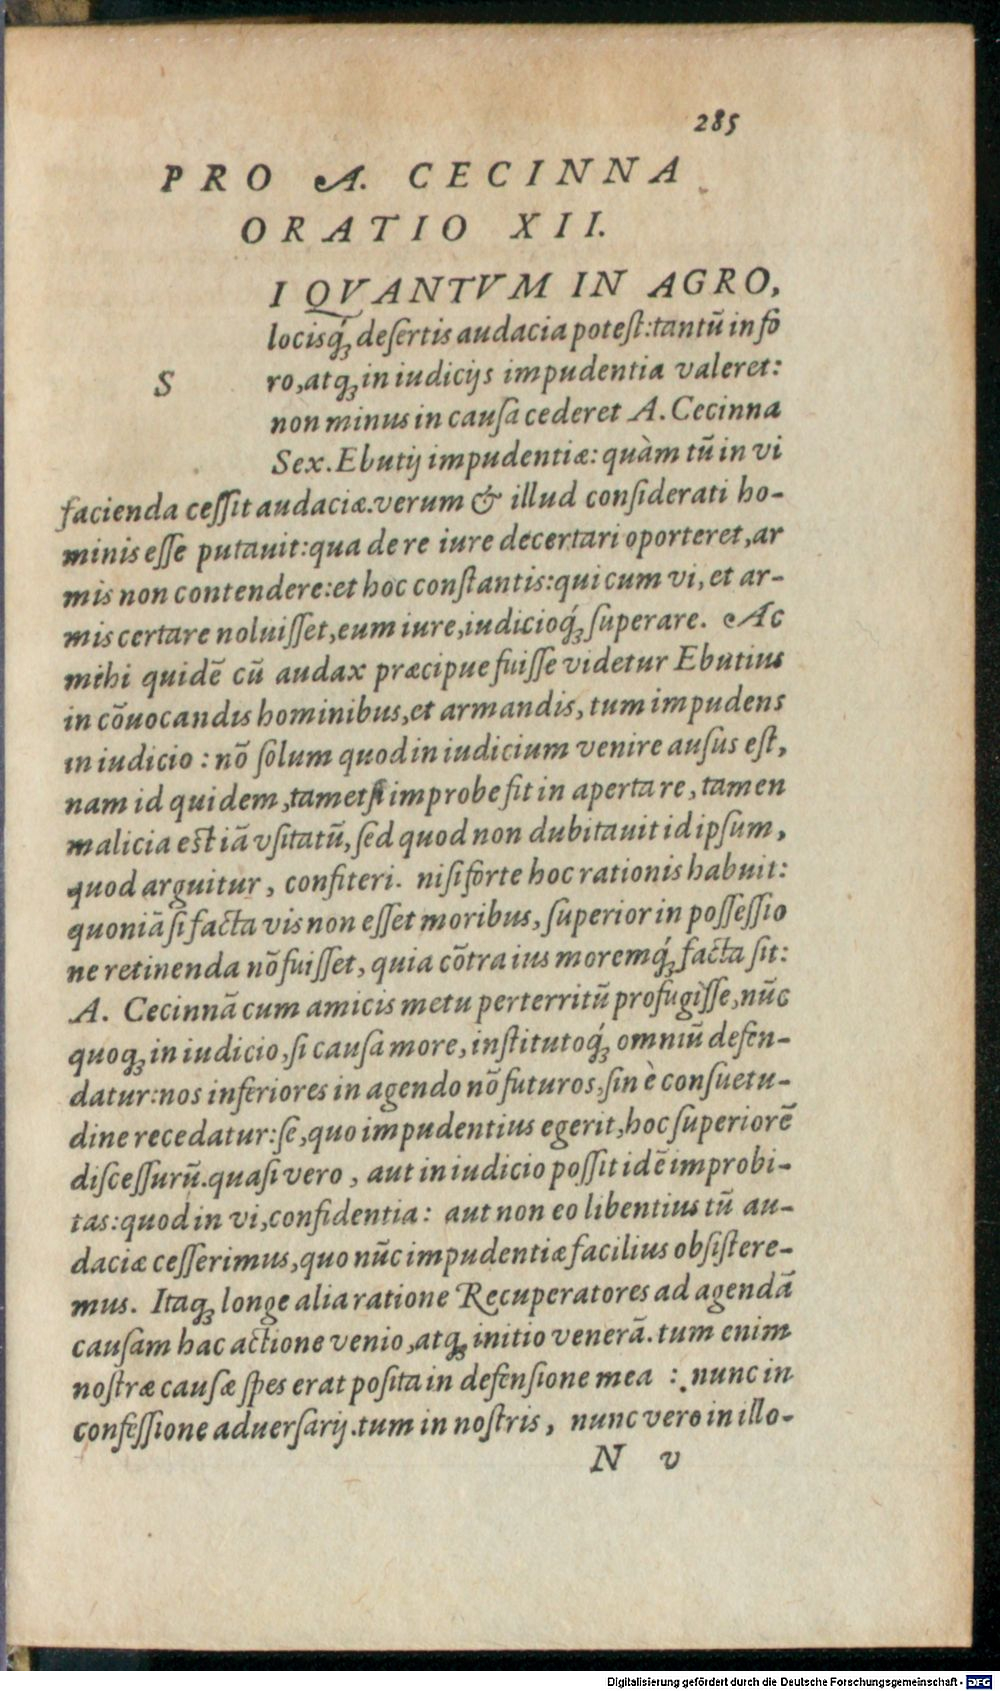 285
PRO A. CECINNA
ORATIO XII.
S
I QVANTVM IN AGRO,
locisq́ꝫ desertis audacia potest:tantũ in fo
ro,atqꝫ in iudicijs impudentia valeret:
non minus in causa cederet A. Cecinna
Sex. Ebutij impudentiæ: quàm tũ in vi
facienda cessit audaciæ.verum & illud considerati ho-
minis esse putauit:qua de re iure decertari oporteret,ar
mis non contendere:et hoc constantis:qui cum vi, et ar-
mis certare noluisset,eum iure,iudicioq́ꝫ superare. Ac
mihi quidẽ cũ audax præcipue fuisse videtur Ebutius
in cõuocandis hominibus,et armandis, tum impudens
in iudicio : nõ solum quod in iudicium venire ausus est,
nam id quidem,tametsi improbe fit in aperta re, tamen
malicia est iã vsitatũ, sed quod non dubitauit id ipsum,
quod arguitur, confiteri. nisi forte hoc rationis habuit:
quoniã si facta vis non esset moribus, superior in possessio
ne retinenda nõ fuisset, quia cõtra ius moremq́ꝫ facta sit:
A. Cecinnã cum amicis metu perterritũ profugisse,nũc
quoqꝫ in iudicio,si causa more, institutoq́ꝫ omniũ defen-
datur:nos inferiores in agendo nõ futuros,sin è consuetu-
dine recedatur:se,quo impudentius egerit,hoc superiorẽ
discessurũ.quasi vero, aut in iudicio possit idẽ improbi-
tas:quod in vi,confidentia: aut non eo libentius tũ au-
daciæ cesserimus,quo nũc impudentiæ facilius obsistere-
mus. Itaqꝫ longe alia ratione Recuperatores ad agendã
causam hac actione venio,atqꝫ initio venerã. tum enim
nostræ causæ spes erat posita in defensione mea : nunc in
confessione aduersarij.tum in nostris, nunc vero in illo-
N v
Digitalisierung gefördert durch die Deutsche Forschungsgemeinschaft - DFG